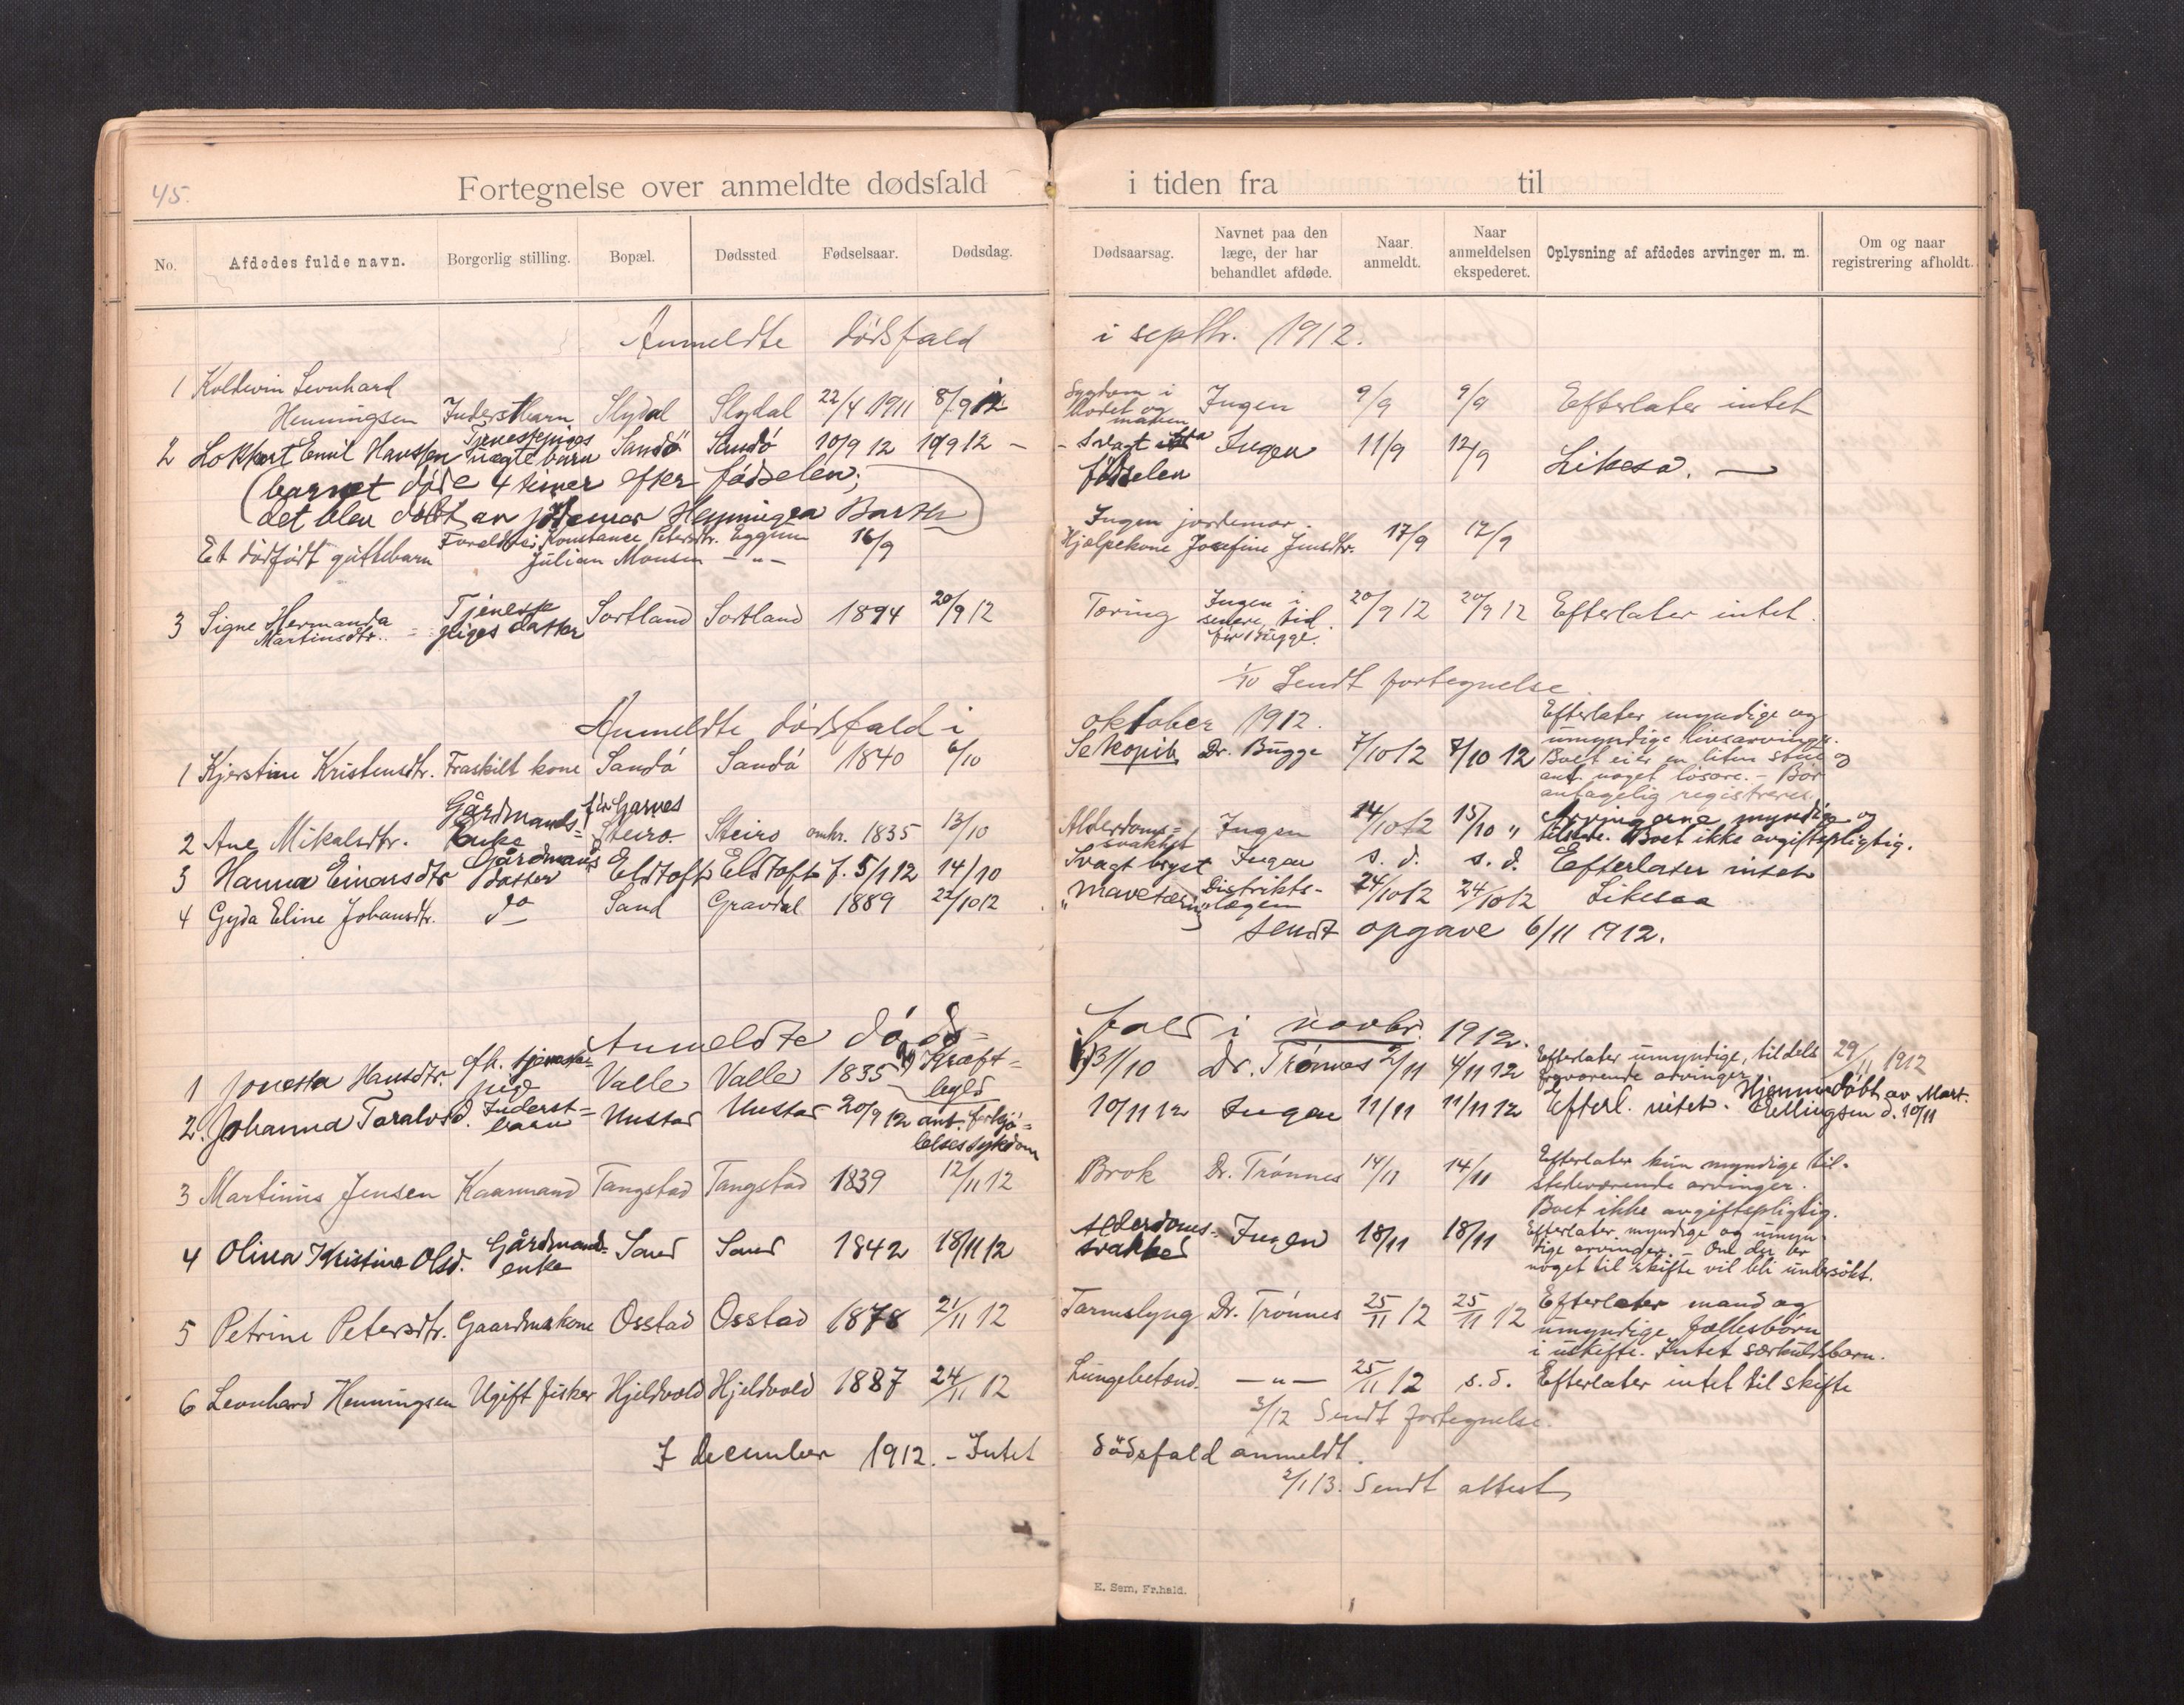 45.
Fortegnelse over anmeldte dødsfald i tiden fra til
No. Afdødes fulde navn. Borgerlig stilling. Bopæl. Dødssted Fødselsaar. Dødsdag. Dødsaarsag. Navnet paa den læge, der har behandlet afdøde. Naar anmeldt. Naar anmeldelsen ekspederet. Oplysning af afdødes arvinger m. m. Om og naar registrering afholdt.
Anmeldte dødsfald i septbr. 1912.
1 Koldevin Leonhard
Henningsen Inderstbarn Slydal Slydal 22/4 1911 8/9 12 Sygdom i blodet og maven Ingen 9/9 9/9 Efterlater intet
2 Lokkert Emil Hanssen Tjenestepiges uægte barn Sandö Sandö 10/9 12 10/9 12 - svagt fra fødselen Ingen 11/9 12/9 Likesa. —
(barnet døde 4 timer efter fødselen;
det blev døbt av jordemor Henningea Barth)
Et dødfødt guttebarn Foreldre: Konstance Petersdtr. Eggum 16/9 Ingen jordemor.
Julian Monsen - " - Hjælpekone Josefine Jensdtr. 17/9 17/9
3 Signe Hermanda Martinsdtr. Tjenestepiges datter Sortland Sortland 1894 20/9 12 Tæring Ingen i senere tid før Bugge. 20/9 12 20/9 12 Efterlater intet.
1/10 Sendt fortegnelse.
Anmeldte dødsfald i oktober 1912.
1 Kjerstine Kristensdtr. Fraskilt kone Sandö Sandö 1840 6/10 Se kopib. Dr. Bugge 7/10 12 7/10 12 Efterlater myndige og umyndige livsarvinger. Boet eier en liten stue og ant. noget løsøre. - Bør antagelig registreres.
2 Ane Mikalsdtr. Gårdmands= enke Steiro Steiro omkr. 1835 13/10 Alderdoms= svakhet Ingen 14/10 12 15/10 " Arvingerne myndige og tilstede. Boet ikke avgiftspligtig.
3 Hanna Einarsdtr Gårdmans datter Eldtoft Eldtoft f. 5/1 12 14/10 Svagt bryst Ingen s. d. s. d. Efterlater intet
4 Gyda Eline Johansdtr. do Sand Gravdal 1889 22/10 12 "Mavetæring" Distrikts-lægen 24/10 12 24/10 12 Likesaa
Sendt opgave 6/11 1912.
Anmeldte döds= fald i novbr. 1912.
1 Jonetta Hansdtr. fh. tjenestepige Valle Valle 1835 Kræft= byld 31/10 Dr. Trönnes 2/11 4/11 12 Efterlater umyndige, tildels fraværende arvinger. 29/11 1912
2. Johanna Toralvsd. Inderst= barn Unstad Unstad 20/9 12 ant. forkjö= lelsessykdom 10/11 12 Ingen 11/11 11/11 12 Efterl. intet. Hjemmedöbt av Mart. Ellingsen d. 10/11
3 Martinus Jensen Kaarmand Tangstad Tangstad 1839 12/11 12 Brok Dr. Trönnes 14/11 14/11 Efterlater kun myndige til- stedeværende arvinger. Boet ikke avgiftspligtig.
4 Olina Kristine Olsd. Gårdmand- enke Sand Sand 1842 18/11 12 Alderdoms- svakhed Ingen 18/11 18/11 Efterlater myndige og umyn- dige arvinger. - Om der er noget til skifte vil bli undersökt.
5 Petrine Petersdtr. Gaardmskone Osstad Osstad 1878 21/11 12 Tarmslyng Dr. Trönnes 25/11 12 25/11 12 Efterlater mand og umyndige fællesbörn i uskifte. Intet særkuldsbarn.
6 Leonhard Henningsen Ugift fisker Hjeldvold Hjeldvold 1887 24/11 12 Lungebetænd. - " - 25/11 12 s. d. Efterlater intet til skifte
3/12 Sendt fortegnelse.
I december 1912. - Intet dödsfald anmeldt.
2/1 13. Sendt attest
E. Sem, Fr.hald.